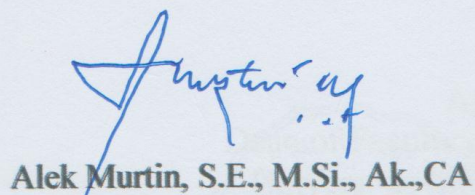 Alek Murtin, S.E., M.Si., Ak.,CA